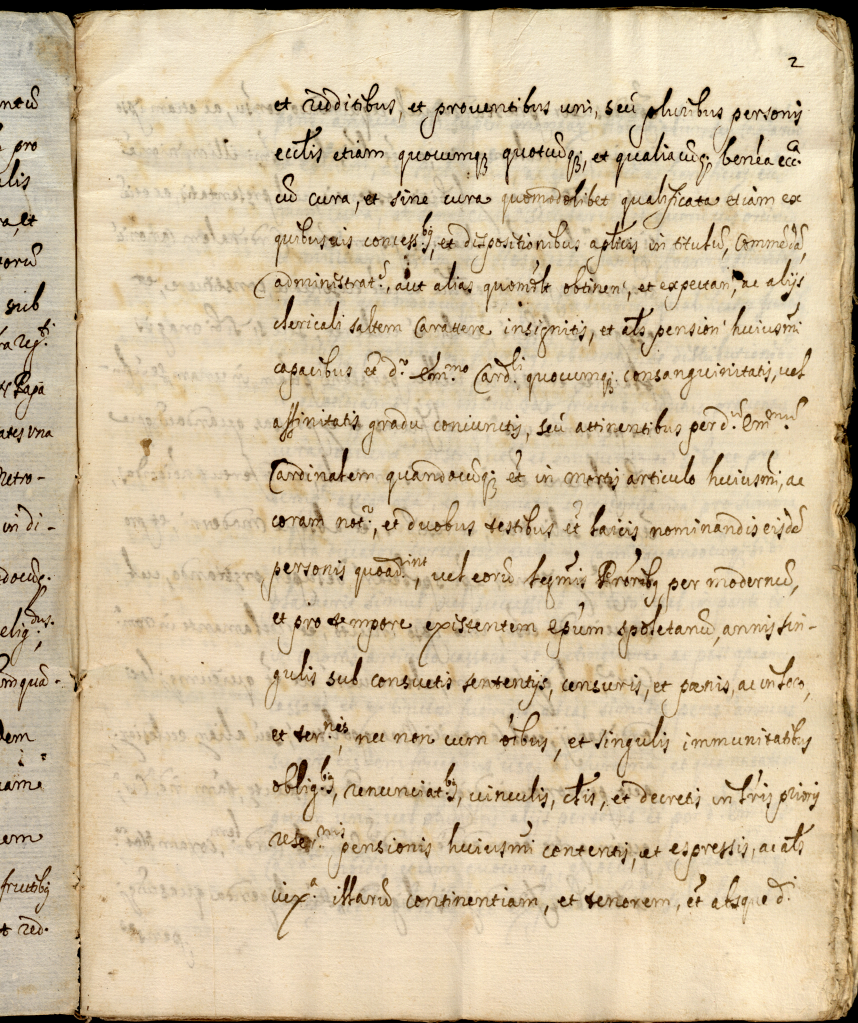 2
et redditibus, et prouentibus uni, seù pluribus personis
eccl̃is etiam quocumq; quotcũq;, et qualiacũq; benẽa ecc.ca
cũ cura, et sine cura quomodolibet qualificata etiàm ex
quibusuis concess.bq, et dispositionibus aplicis in titulũ, Commẽdã,
administrat.ẽ, aut alias quomõlt obtinen', et expectan', ac alijs
clericali saltem Carattere insignitis, et als pension' huiusmi
capacibus et d.o Em.mo Card.li quocumq; consanguinitatis, uel
affinitatis gradu coniunctis, seù attinentibus per d.um Em.mum
Cardinalem quandocũq; ẽt in mortis articulo huiusmi, ac
coram not.o, et duobus testibus ẽt laicis nominandis eisdẽ
personis quoad.uixint, uel eorũ legm̃is Prõribq per modernũ,
et pro tempore existentem Epũm spoletanũ, annis sin-
gulis sub consuetis sententijs, censuris, et pænis, ac in loco,
et ter.nis, nec non cum õibus, et singulis immunitatibus
oblig.bq, renunciat.bq, uinculis, cl̃is, et decretis in lr̃is prioris
reser.nis pensionis huiusmi contentis, et expressis, ac als
iux.a illarũ continentiam, et tenorem, ẽt absque d.i
ntũ
pro
alis
ra, et
orũ
sub
Papa
ates una
Retro-
in di-
docũq.
elig.dus
umquã-
dem
uam
em
fructibq
et red.